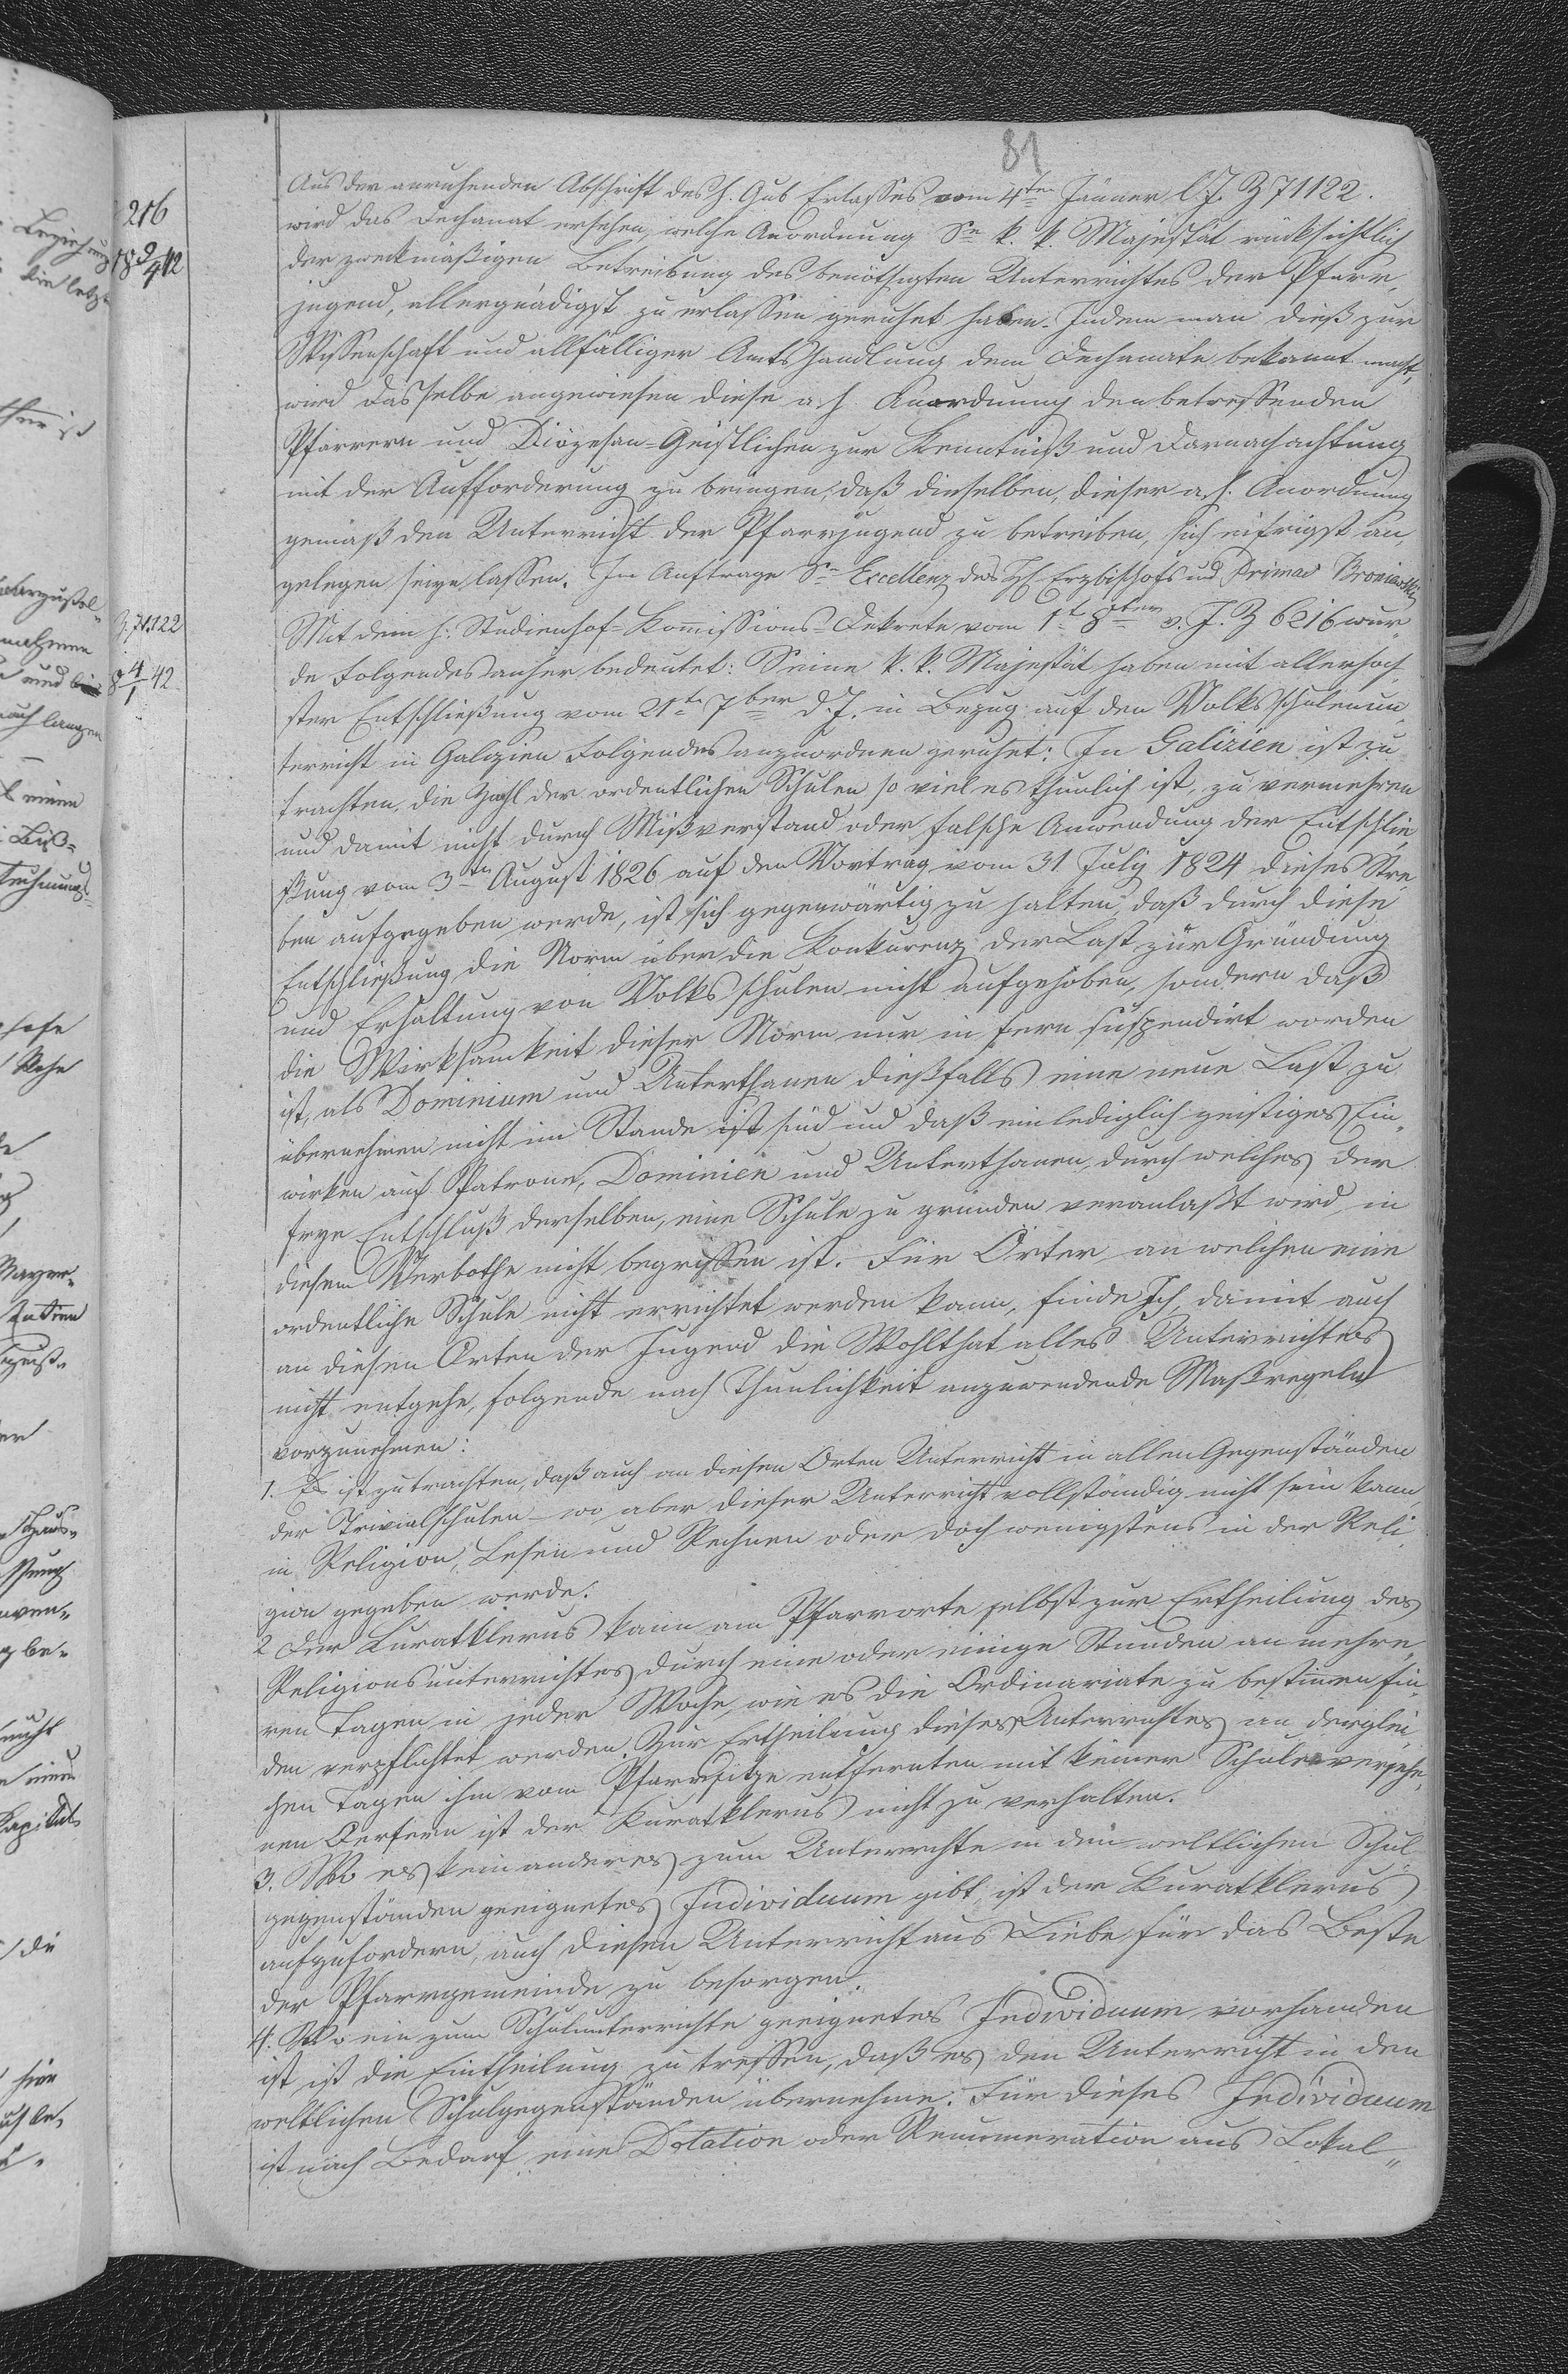 81
216
18 9/4 42
Aus der anruhenden Abschrift des h. Gub Erlaßes vom 4ten Jänner l. J. Z 71122.
wird das Dechanat ersehen, welche Anordnung Se k. k. Majestät rücksichtlich
der zweckmäßigen Betreibung des benöthigten Unterrichtes der Pfarr¬
jugend, allergnädigst zu erlassen geruhet haben. Indem man dieß zur
Wissenschaft und allfälliger Amtshandlung dem Dechanate bekannt macht,
wird dasselbe angewiesen diese a. h. Anordnung den betreffenden
Pfarrern und Diözesan-Geistlichen zur Kenntniß und Darnachachtung
mit der Aufforderung zu bringen, daß dieselben, dieser a. h. Anordnung
gemäß den Unterricht der Pfarrjugend zu betreiben, sich eifrigst an¬
gelegen seyn lassen. Im Auftrage Sr Excellenz des H H Erzbischofs und Primas Broniewski
Z. 71122
8 4/1 42
Mit dem h: Studienhof-Kommissions-Dekrete vom 1t 8ber v. J. Z 6216 wur¬
de Folgendes anher bedeutet: Seine k. k. Majestät haben mit allerhöch¬
ster Entschließung vom 21ten 7ber d. J. in Bezug auf den Volksschulenun¬
terricht in Galizien Folgendes anzuordnen geruhet: In Galizien ist zu
trachten, die Zahl der ordentlichen Schulen so viel es thunlich ist, zu vermehren
und damit nicht durch Mißverstand oder falsche Anwendung der Entschlie¬
ßung vom 3ten August 1826 auf den Vortrag vom 31 July 1824 dieses Stre¬
ben aufgegeben werde, ist sich gegenwärtig zu halten, daß durch diese
Entschließung die Norm über die Konkurenz der Last zur Gründung
und Erhaltung von Volksschulen nicht aufgehoben, sondern daß
die Wirksamkeit dieser Norm nur in fern suspendirt worden
ist, als Dominium und Unterthanen dießfalls eine neue Last zu
übernehmen nicht im Stande ist sind und daß ein lediglich geistiges Ein¬
wirken auf Patrone, Dominien und Unterthanen, durch welches der
freye Entschluß derselben, eine Schule zu gründen veranlaßt wird, in
diesem Verbothe nicht begriffen ist. Für Örter an welchen eine
ordentliche Schule nicht errichtet werden kann, finde Ich, damit auch
an diesen Orten der Jugend die Wohlthat alles Unterrichtes
nicht entgehe, folgende nach Thunlichkeit anzuwendende Maßregeln
vorzunehmen:
1. Es ist zu trachten, daß auch an diesen Orten Unterricht in allen Gegenständen
der Trivialschulen – wo aber dieser Unterricht vollständig nicht sein kann,
in Religion, Lesen und Rechnen oder doch wenigstens in der Reli¬
gion gegeben werde.
2 Der Kuratklerus kann am Pfarrorte selbst zur Ertheilung des
Religionsunterrichtes durch eine oder einige Stunden an mehre¬
ren Tagen in jeder Woche, wie es die Ordinariate zu bestimmen fin¬
den verpflichtet werden. Zur Ertheilung dieses Unterrichtes an derglei¬
chen Tagen ihm vom Pfarrsitze entfernten mit keiner Schule versehe¬
nen Oertern ist der Kuratklerus nicht zu verhalten.
3. Wo es kein anderes zum Unterrichte in den weltlichen Schul¬
gegenständen geeignetes Individuum gibt, ist der Kuratklerus
aufzufordern, auch diesen Unterricht aus Liebe für das Beste
der Pfarrgemeinde zu besorgen.
4. Wo ein zum Schulunterrichte geeignetes Individuum vorhanden
ist ist die Eintheilung zu treffen, daß es den Unterricht in den
weltlichen Schulgegenständen übernehme. Für dieses Individuum
ist nach Bedarf eine Dotation oder Remuneration aus Lokal¬